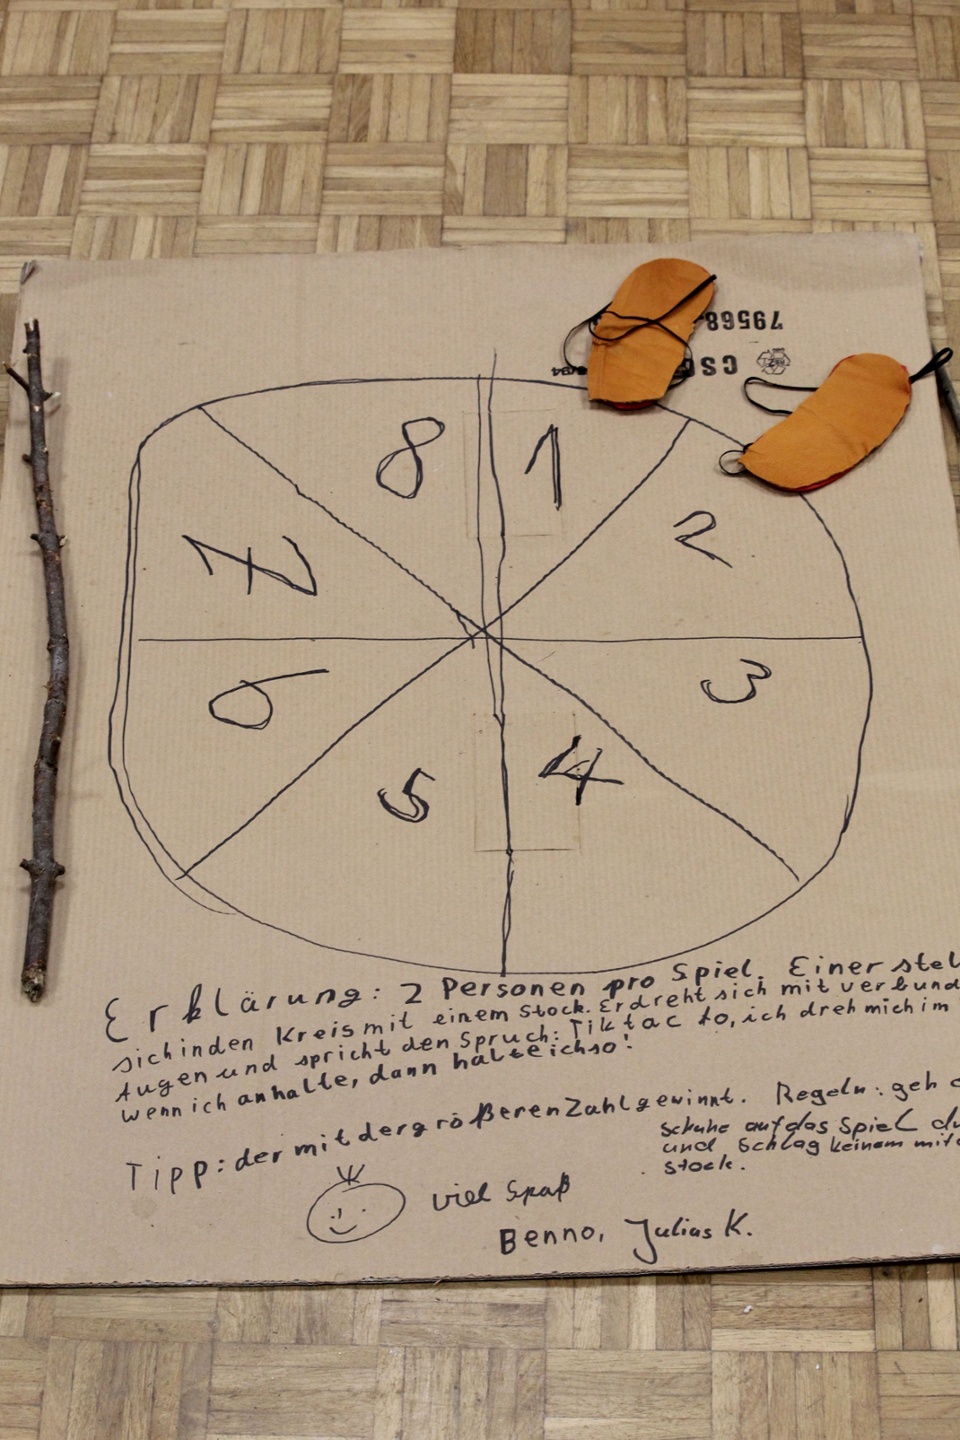 79568
CSC
8 1
7 2
6 3
5 4
Erklärung: 2 Personen pro Spiel. Einer stel
sich in den Kreis mit einem Stock. Er dreht sich mit verbund
Augen und spricht den Spruch: Tik tac to, ich dreh mich im
wenn ich anhalte, dann halte ich so!
Tipp: der mit der größeren Zahl gewinnt. Regeln: geh
schuhe auf das Spiel du
und schlag keinem mit
stock.
viel Spaß
Benno, Julius K.